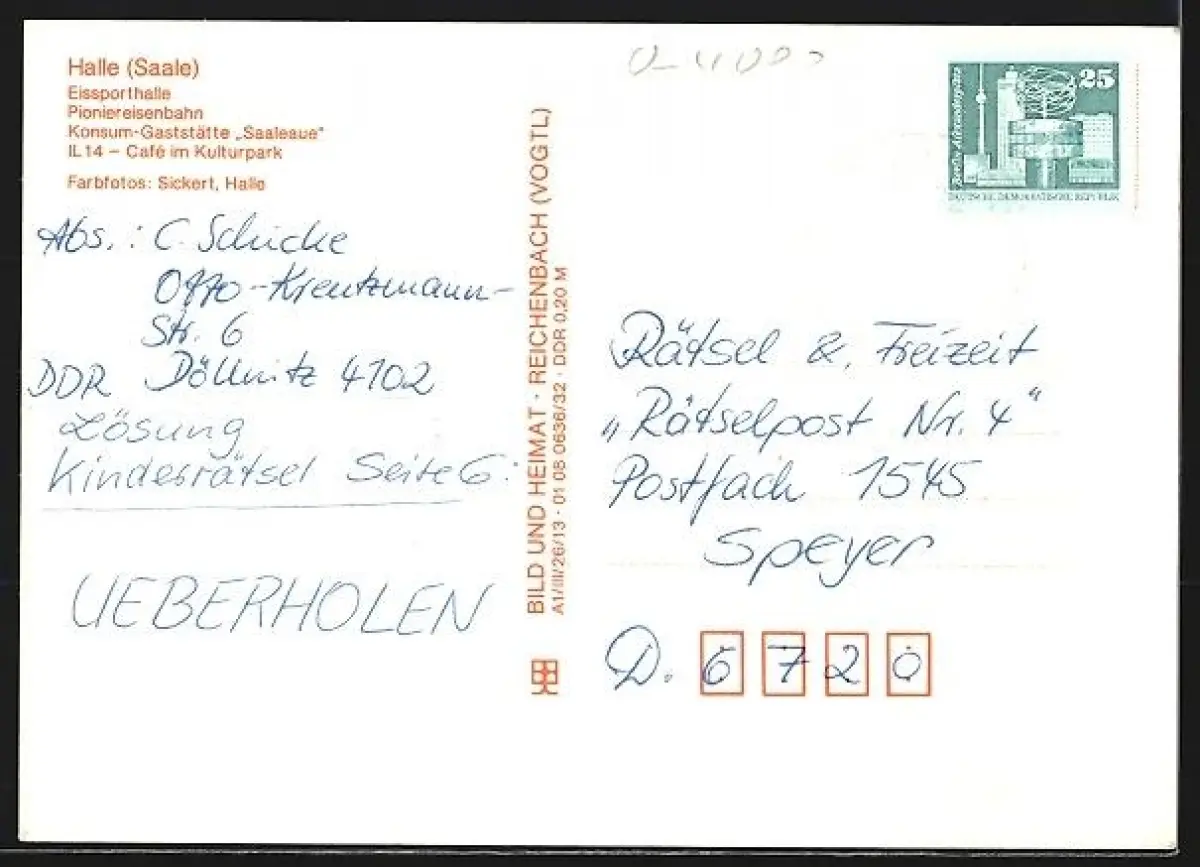 Halle (Saale)
Eissporthalle
Pioniereisenbahn
Konsum-Gaststätte „Saaleaue"
IL 14 – Café im Kulturpark
Farbfotos: Sickert, Halle
Abs.: C. Schicke
Otto-Kreutzmann-
Str. 6
DDR Döllnitz 4102
Lösung
Kinderrätsel Seite 6:
UEBERHOLEN
BILD UND HEIMAT · REICHENBACH (VOGTL)
A1/III/26/13 · 01 08 0636/32 · DDR 0,20 M
25
Berlin, Alexanderplatz
DEUTSCHE DEMOKRATISCHE REPUBLIK
Rätsel & Freizeit
„Rätselpost Nr. 4"
Postfach 1545
Speyer
D. 6720